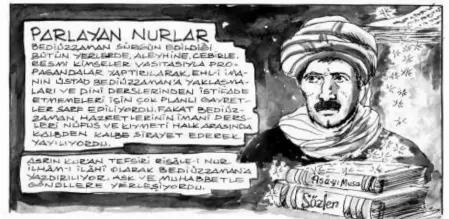 PARLAYAN NURLAR
BEDİÜZZAMAN SÜRGÜN EDİLDİĞİ
BÜTÜN YERLERDE, ALEYHİNE, CEBİRLE,
RESMİ KİMSELER VASITASIYLA PRO-
PAGANDALAR YAPTIRILARAK, EHL-İ İMA-
NIN ÜSTAD BEDİÜZZAMAN'A YAKLAŞMA-
LARI VE DİNİ DERSLERİNDEN İSTİFADE
ETMEMELERİ İÇİN ÇOK PLANLI GAYRET-
LER SARF EDİLİYORDU. FAKAT BEDİÜZ-
ZAMAN, HAZRETLERİNİN İMANİ DERS-
LERİ NÜFUS VE KIYMETİ HALK ARASINDA
KALBDEN KALBE SİRAYET EDEREK
YAYILIYORDU.
ASRIN KURAN TEFSİRİ RİSÂLE-İ NUR
İLHÂM-I İLÂHİ OLARAK BEDİÜZZAMAN'A
YAZDIRILIYOR. AŞK VE MUHABBETLE
GÖNÜLLERE YERLEŞİYORDU.
Asâ-yı Musa
Sözler